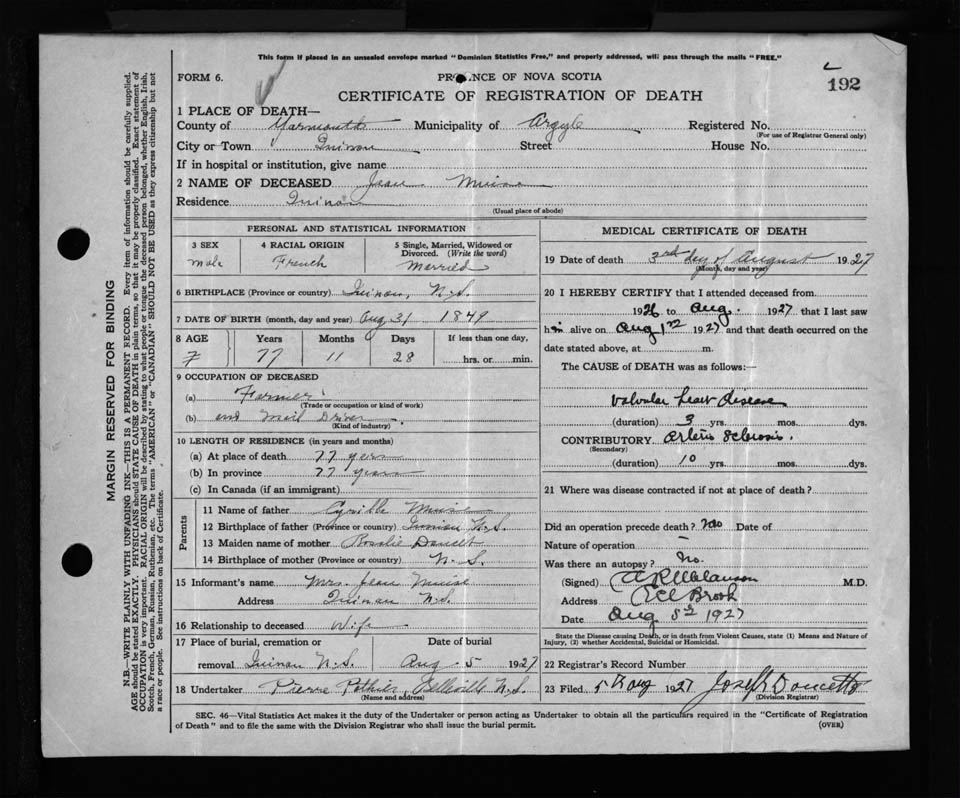 This form if placed in an unsealed envelope marked "Dominion Statistics Free," and properly addressed, will pass through the mails "FREE."
FORM 6.
PROVINCE OF NOVA SCOTIA
192
CERTIFICATE OF REGISTRATION OF DEATH
1 PLACE OF DEATH—
County of Yarmouth Municipality of Argyle Registered No.
(For use of Registrar General only)
City or Town Quinan Street House No.
If in hospital or institution, give name
2 NAME OF DECEASED Jean Muise
Residence Quinan
(Usual place of abode)
PERSONAL AND STATISTICAL INFORMATION
3 SEX 4 RACIAL ORIGIN 5 Single, Married, Widowed or Divorced. (Write the word)
male French Married
6 BIRTHPLACE (Province or country) Quinan, N.S.
7 DATE OF BIRTH (month, day and year) Aug 31 1849
8 AGE Years Months Days If less than one day,
77 11 28 hrs. or min.
9 OCCUPATION OF DECEASED
(a) Farmer
(Trade or occupation or kind of work)
(b) and Mail Driver
(Kind of industry)
10 LENGTH OF RESIDENCE (in years and months)
(a) At place of death 77 years
(b) In province 77 years
(c) In Canada (if an immigrant)
Parents
11 Name of father Cyrille Muise
12 Birthplace of father (Province or country) Quinan N.S.
13 Maiden name of mother Rosalie Doucet
14 Birthplace of mother (Province or country) N.S.
15 Informant's name Mrs. Jean Muise
Address Quinan N.S.
16 Relationship to deceased Wife
17 Place of burial, cremation or Date of burial
removal Quinan N.S. Aug. 5 1927
18 Undertaker Pierre Pothier, Belleville N.S.
(Name and address)
MEDICAL CERTIFICATE OF DEATH
19 Date of death 3rd day of August 1927
(Month, day and year)
20 I HEREBY CERTIFY that I attended deceased from
1926 to Aug. 1927 that I last saw
him alive on Aug 1927 and that death occurred on the
date stated above, at m.
The CAUSE of DEATH was as follows:—
Valvular heart disease
(duration) 3 yrs. mos. dys.
CONTRIBUTORY Arterio Sclerosis.
(Secondary)
(duration) 10 yrs. mos. dys.
21 Where was disease contracted if not at place of death?
Did an operation precede death? No Date of
Nature of operation —
Was there an autopsy? No.
(Signed) M.D.
Address Eel Brook
Date Aug 1927
State the Disease causing Death, or in death from Violent Causes, state (1) Means and Nature of Injury, (2) whether Accidental, Suicidal or Homicidal.
22 Registrar's Record Number
23 Filed 5 Aug 1927 Joseph Doucette
(Division Registrar)
SEC. 46—Vital Statistics Act makes it the duty of the Undertaker or person acting as Undertaker to obtain all the particulars required in the "Certificate of Registration
of Death" and to file the same with the Division Registrar who shall issue the burial permit.
(OVER)
MARGIN RESERVED FOR BINDING
N.B.—WRITE PLAINLY WITH UNFADING INK—THIS IS A PERMANENT RECORD. Every item of information should be carefully supplied.
AGE should be stated EXACTLY. PHYSICIANS should STATE CAUSE OF DEATH in plain terms, so that it may be properly classified. Exact statement of
OCCUPATION is very important. RACIAL ORIGIN will be described by stating to what people or tongue the deceased person belonged, whether English, Irish,
Scotch, French, German, Russian, Ruthenian, etc. The terms "AMERICAN" or "CANADIAN" SHOULD NOT BE USED as they express citizenship but not
a race or people. See instructions on back of Certificate.